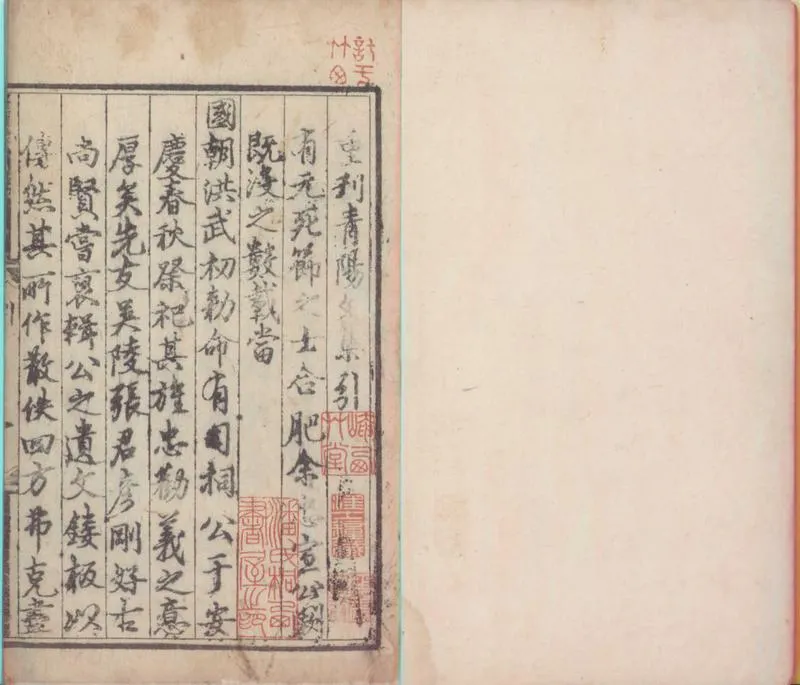 重刊青陽文集引
有元死節之士合肥余忠宣公闕
既没之數載當
國朝洪武初勅命有司祠公于安
慶春秋祭祀其旌忠勸義之意
厚矣先友吴陵張君彦剛好古
尚賢嘗裒輯公之遺文鋟板以
傳然其所作散佚四方弗克盡
潘氏桐西
書屋之印